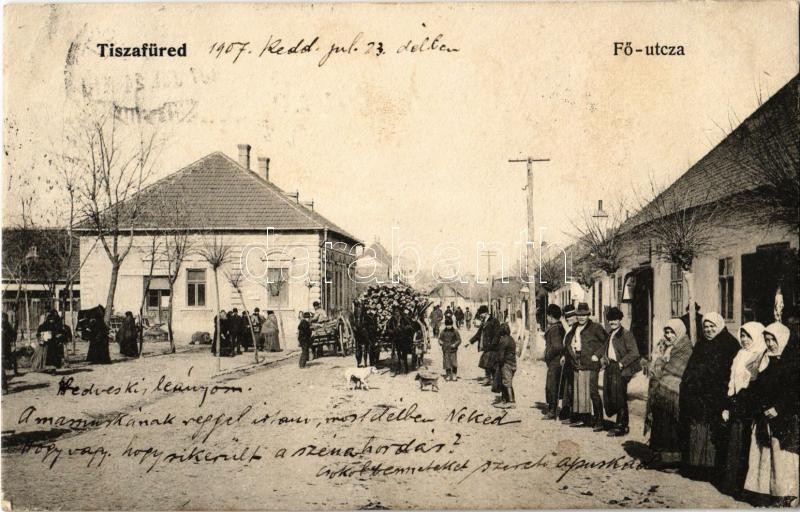 Tiszafüred 1907. Kedd. jul. 23. délben
Fő-utcza
darabanth.com
Kedveski leányom.
A mamuskának reggel irtam, most délben Neked
Hogy vagy, hogy sikerült a széna hordás?
Csókol benneteket szerető apuskád